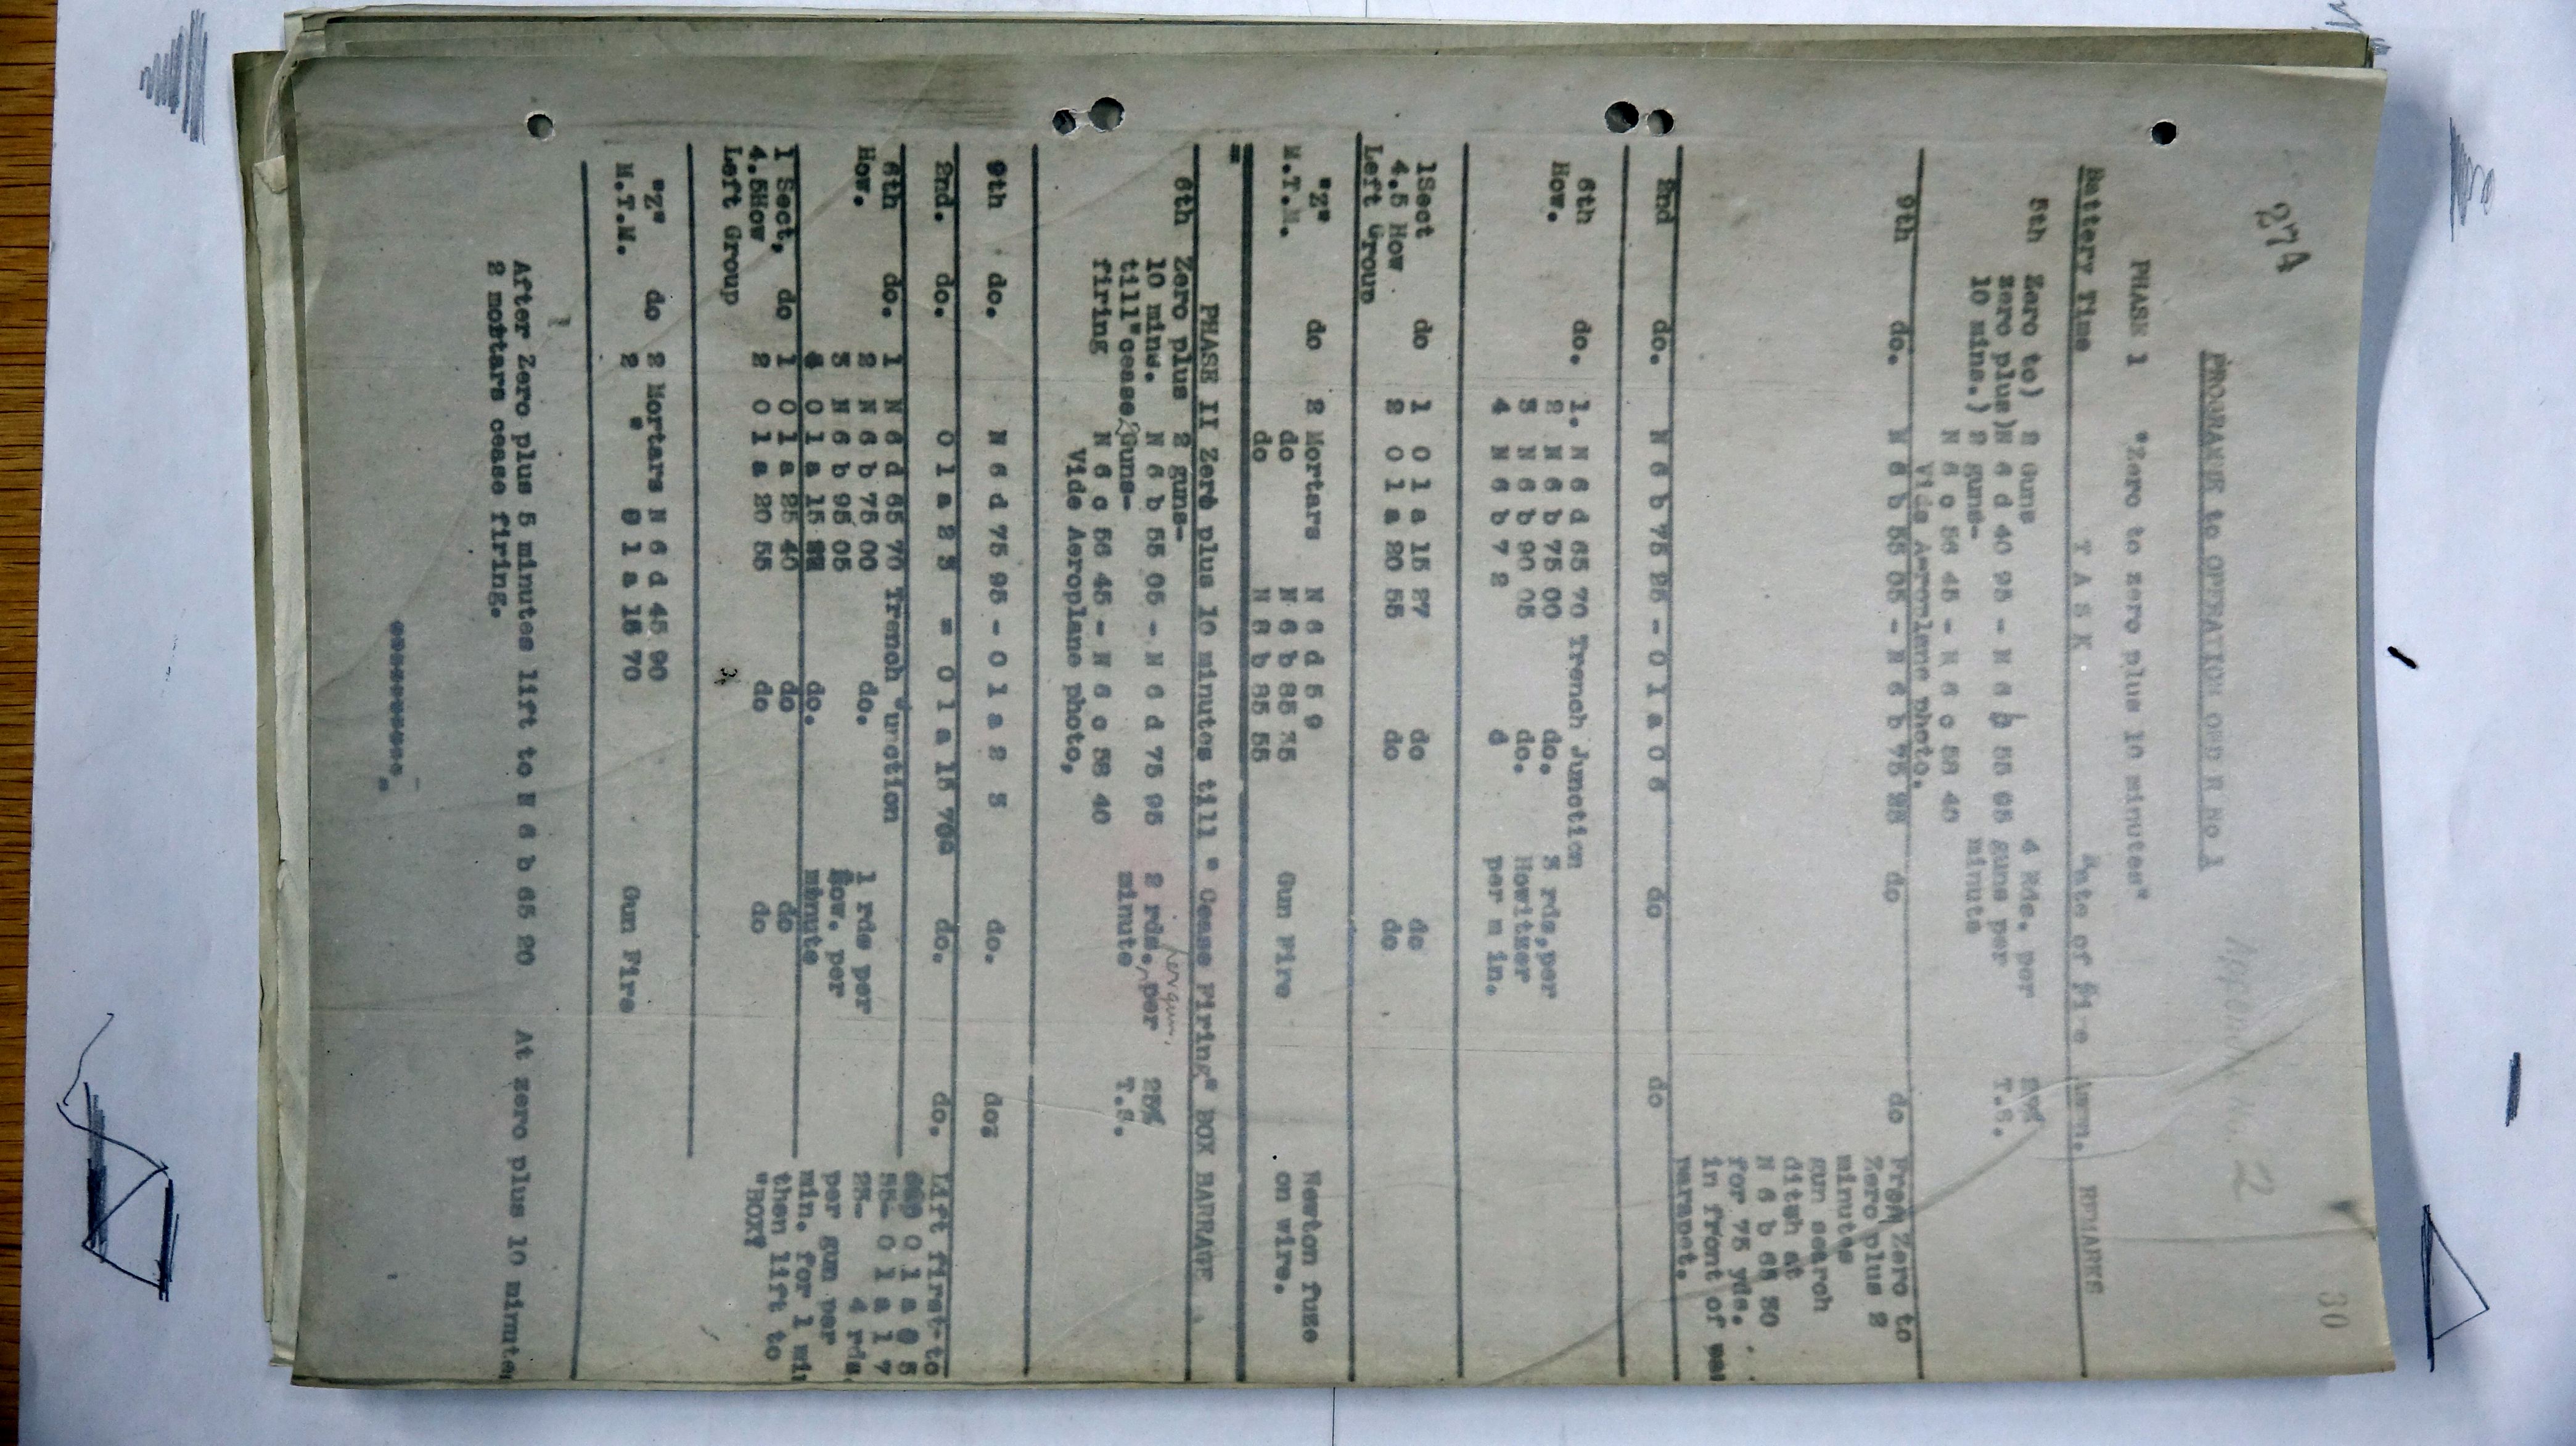 274
30
Appendix No. 2
PROGRAMME to OPERATION ORD R No 1
PHASE 1 "Zero to zero plus 10 minutes"
Battery Time T A S K Rate of Fire Amm. REMARKS
5th Zero to) 2 Guns 4 Rds. per
zero plus)N 6 d 40 95 - N 6 b 55 05 guns per T.S.
10 mins.) 2 guns- minute
N 6 c 56 45 - N 6 c 58 40
Vide Aeroplane photo.
9th do. N 6 b 55 05 - N 6 b 75 25 do do From Zero to
Zero plus 2
minutes
gun search
ditch at
N 6 b 65 30
for 75 yds.
in front of
parapet.
2nd do. N 6 b 75 25 - O 1 a 0 6 do do
6th do. 1. N 6 d 65 70 Trench Junction
How. 2 N 6 b 75 00 do. 3 rds,per
3 N 6 b 90 05 do. Howitzer
4 N 6 b 7 2 d per m in.
1Sect do 1 O 1 a 15 27 do do
4.5 How 2 O 1 a 20 55 do do
Left Group
"Z" do 2 Mortars N 6 d 5 9 Newton fuze
M.T.M. do N 6 b 85 35 Gun Fire on wire.
do N 6 b 85 55
PHASE II Zero plus 10 minutes till " Cease Firing" BOX BARRAGE .
6th Zero plus 2 guns-
10 mins. N 6 b 55 05 - N 6 d 75 95 2 rds. per gun, per 25%
till"cease 2 Guns- minute T.S.
firing N 6 c 56 45 - N 6 c 58 40
Vide Aeroplane photo,
9th do. N 6 d 75 95 - O 1 a 2 3 do. do
2nd. do. O 1 a 2 3 = O 1 a 15 70 do. do. Lift first-to
O 1 a 0 5
55- O 1 a 1 7
25- 4 rds.
per gun per
min. for 1
then lift to
"BOX"
6th do. 1 N 6 d 65 70 Trench unction
How. 2 N 6 b 75 00 do. 1 rds per
3 N 6 b 95 05 How. per
O 1 a 15 do. minute
1 Sect, do 1 O 1 a 25 40 do do
4.5How 2 O 1 a 20 55 do do
Left Group
"Z" do 2 Mortars N 6 d 45 90
M.T.M. 2 " O 1 a 15 70 Gun Fire
After Zero plus 5 minutes lift to N 6 b 65 20 At zero plus 10 minute,
2 mortars cease firing.